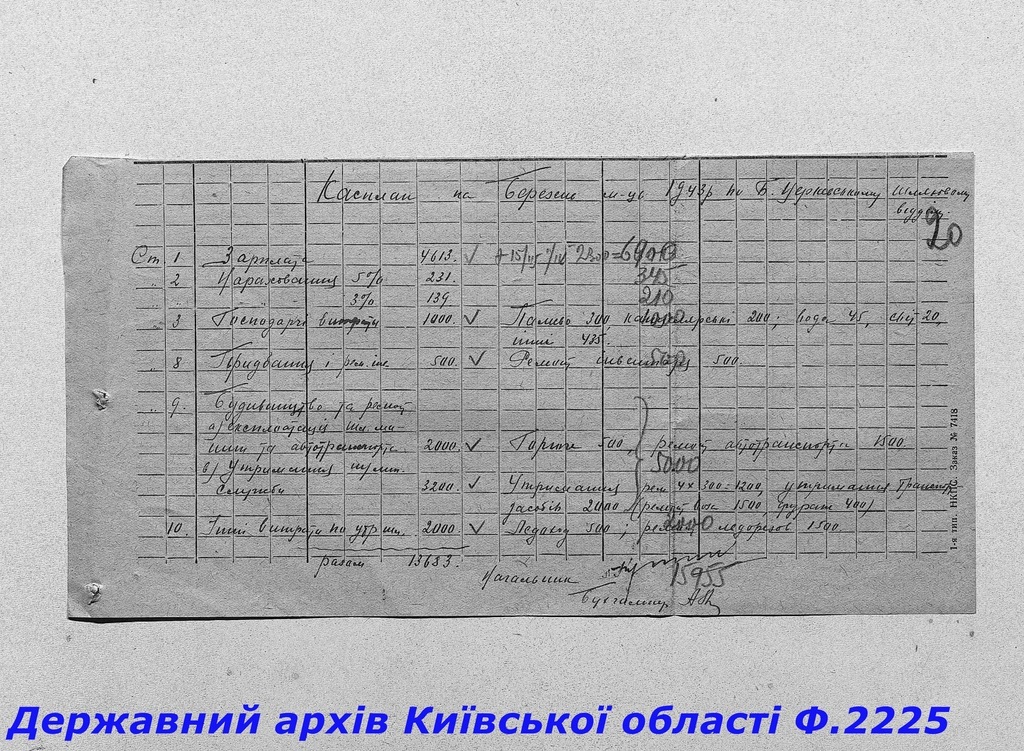 Касплан на Березень м-ць 1943р по Б. Церківському Шляховому
відділу
20
Ст. 1 Зарплата 4613. √ 2300=6900
" 2 Нарахования 5% 231. 345
" 3% 139. 210
" 3 Господарчі витрати 1000. √ Паливо 300, канцелярські 200; вода 45, світ 20,
інші 435.
" 8 Придбання і рем. інв. 500. √ Ремонт інвентаря 500.
" 9. Будівництво та ремонт
а) експлоатація шл. ма-
шин та автотранспорта 2000. √ Горюче 500, ремонт автотранспорта 1500
в) Утримання шлях. 5000
служби 3200. √ Утримання рем 4 х 300=1200, утримання транспор.
засобів 2000 (ремонт воза 1500 фураж 400)
" 10. Інші витрати по утр. шл. 2000. √ Ледокол 500; ремонт ледорезов 1500.
разом 13683. 15955
Начальник
Бухгалтер
1-я тип. НКПС. Заказ № 7418
Державний архів Київської області Ф.2225